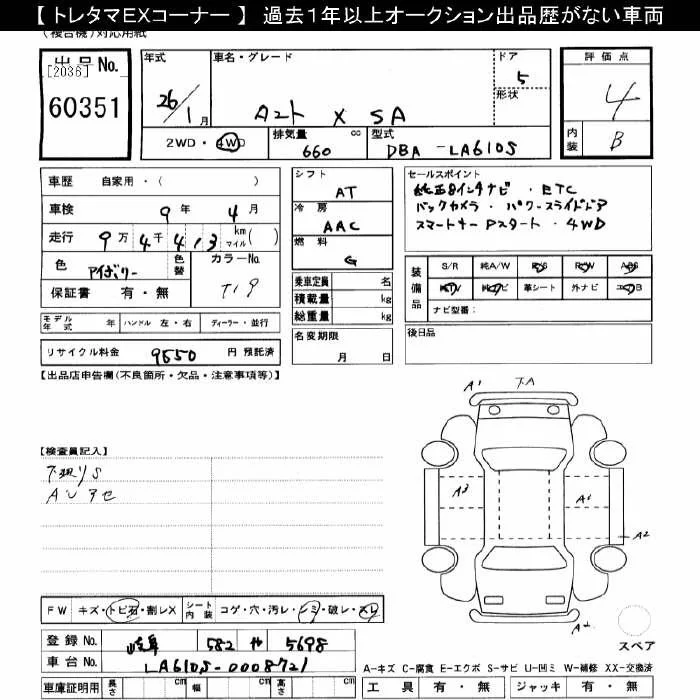 【 トレタマEXコーナー 】 過去1年以上オークション出品歴がない車両
(複合機)対応用紙
出品No.
[2036]
60351
年式
26/1月
車名・グレード
タント X SA
ドア
5
形状
評価点
4
内装 B
2WD・4WD
排気量 660 cc
型式 DBA-LA610S
車歴 自家用・( )
車検 9年 4月
走行 9万4千413 km マイル( )
色 アイボリー 色替
カラーNo. T19
保証書 有・無
シフト AT
冷房 AAC
燃料 G
乗車定員 名
積載量 kg
総重量 kg
名変期限 月 日
セールスポイント
純正8インチナビ・ETC
バックカメラ・パワースライドドア
スマートキー Pスタート・4WD
装備品
S/R 純A/W P/S P/W ABS
純TV 純ナビ 革シート 外ナビ エアB
ナビ型番:
後日品
モデル年式 年 ハンドル 左・右 ディーラー・並行
リサイクル料金 9550 円 預託済
【出品店申告欄(不良箇所・欠品・注意事項等)】
【検査員記入】
下廻りS
AUアセ
A1
下A
A3
A1
A2
A2
スペア
FW キズ・トビ石・割レX
シート内装 コゲ・穴・汚レ・シミ・破レ・スレ
登録No. 岐阜 582 や 5698
車台No. LA610S-0008721
車庫証明用 長さ cm 幅 cm 高さ cm
A-キズ C-腐食 E-エクボ S-サビ U-凹ミ W-補修 XX-交換済
工具 有・無 ジャッキ 有・無